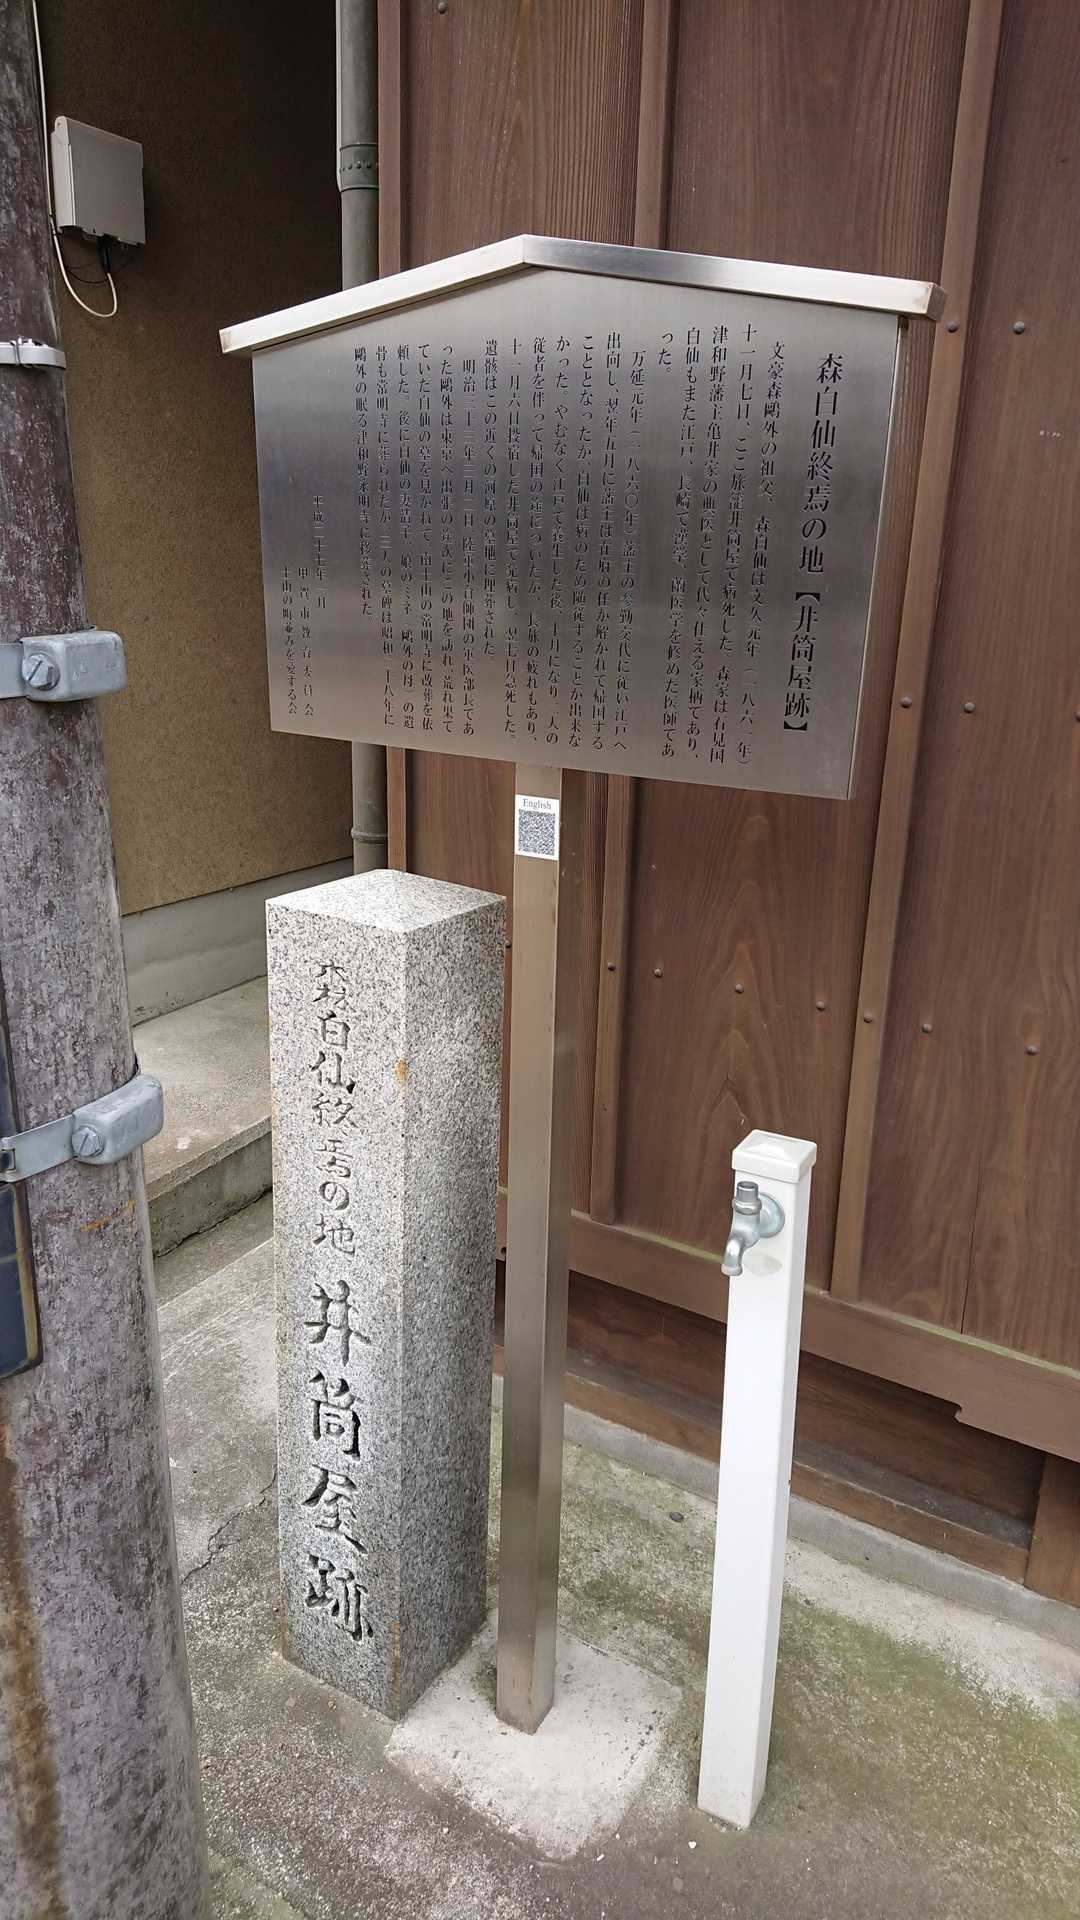 森白仙終焉の地【井筒屋跡】
文豪森鷗外の祖父、森白仙は文久元年(一八六一年)
十一月七日、ここ旅籠井筒屋で病死した。森家は石見国
津和野藩主亀井家の典医として代々仕える家柄であり、
白仙もまた江戸、長崎で漢学、蘭医学を修めた医師であ
った。
万延元年(一八六〇年)藩主の参勤交代に従い江戸へ
出向し、翌年五月に藩主は在府の任が解かれて帰国する
こととなったが、白仙は病のため随従することが出来な
かった。やむなく江戸で養生した後、十月になり、二人の
従者を伴って帰国の途についたが、長旅の疲れもあり、
十一月六日投宿した井筒屋で発病し、翌七日急死した。
遺骸はこの近くの河原の墓地に埋葬された。
明治三十三年三月二日、陸軍小倉師団の軍医部長であ
った鷗外は東京へ出張の途次にこの地を訪れ、荒れ果て
ていた白仙の墓を見かねて、南土山の常明寺に改葬を依
頼した。後に白仙の妻清子、娘のミネ(鷗外の母)の遺
骨も常明寺に葬られたが、三人の墓碑は昭和二十八年に
鷗外の眠る津和野永明寺に移葬された。
平成二十七年一月
甲賀市教育委員会
土山の町並みを愛する会
English
森白仙終焉の地 井筒屋跡